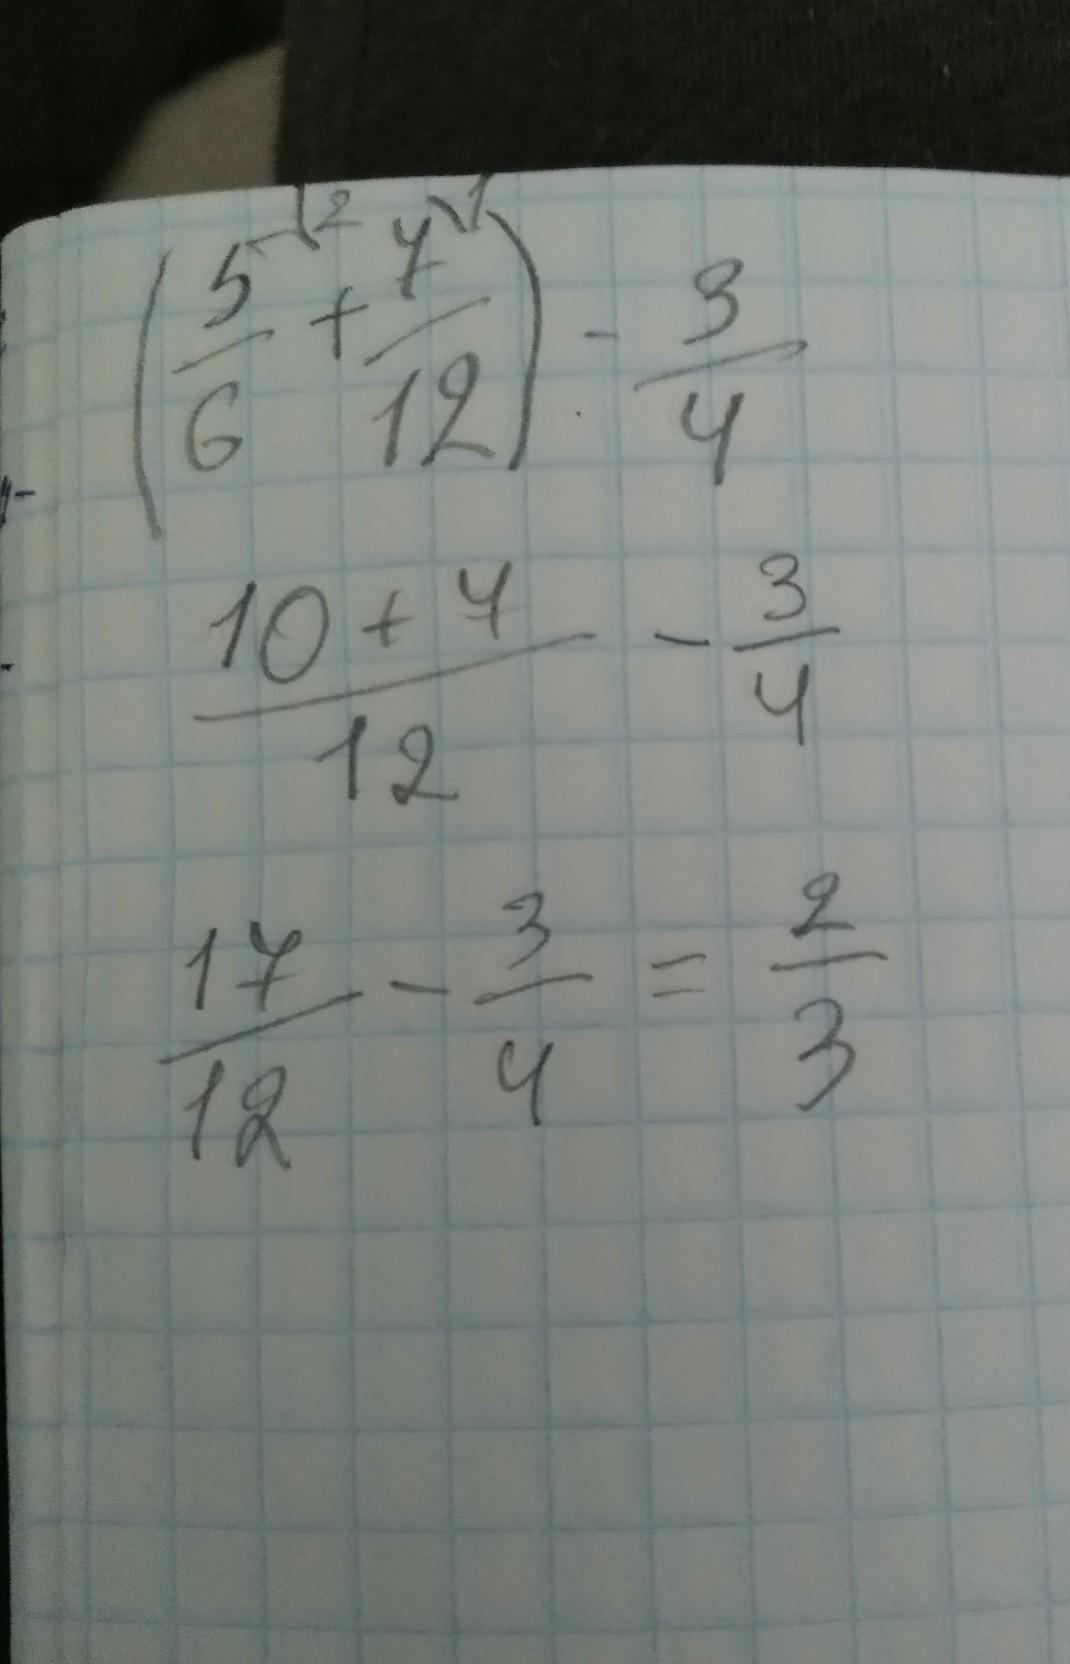 (5/6 \2 + 7/12 \1) - 3/4
10 + 7/12 - 3/4
17/12 - 3/4 = 2/3